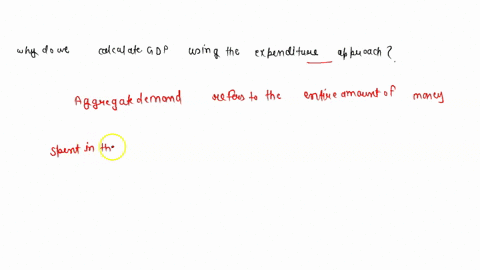 why do we calculate GDP using the expenditure approach?
Aggregate demand refers to the entire amount of money
spent in th